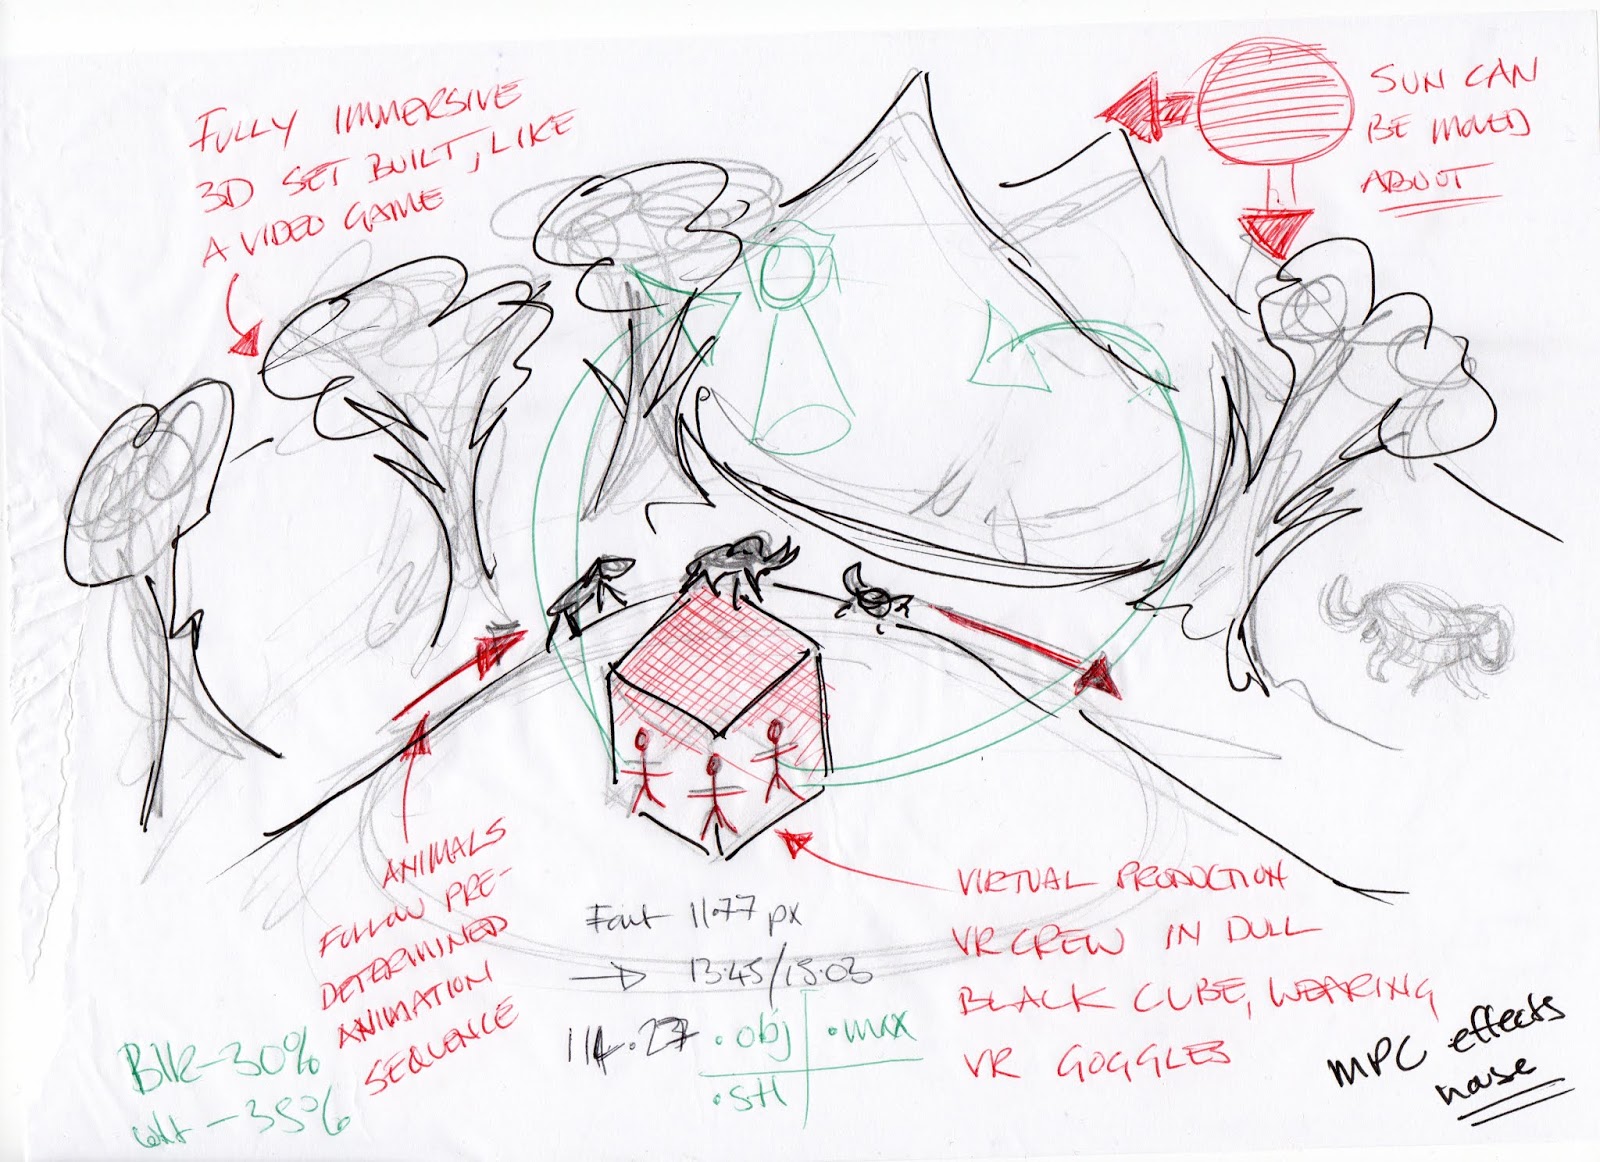 FULLY IMMERSIVE
3D SET BUILT, LIKE
A VIDEO GAME
SUN CAN
BE MOVED
ABOUT
ANIMALS
FOLLOW PRE-
DETERMINED
ANIMATION
SEQUENCE
Font 11.77 px
13.45/15.03
114.27
.obj .max
.stl
VIRTUAL PRODUCTION
VR CREW IN DULL
BLACK CUBE, WEARING
VR GOGGLES
MPC effects
house
Blk-30%
-35%